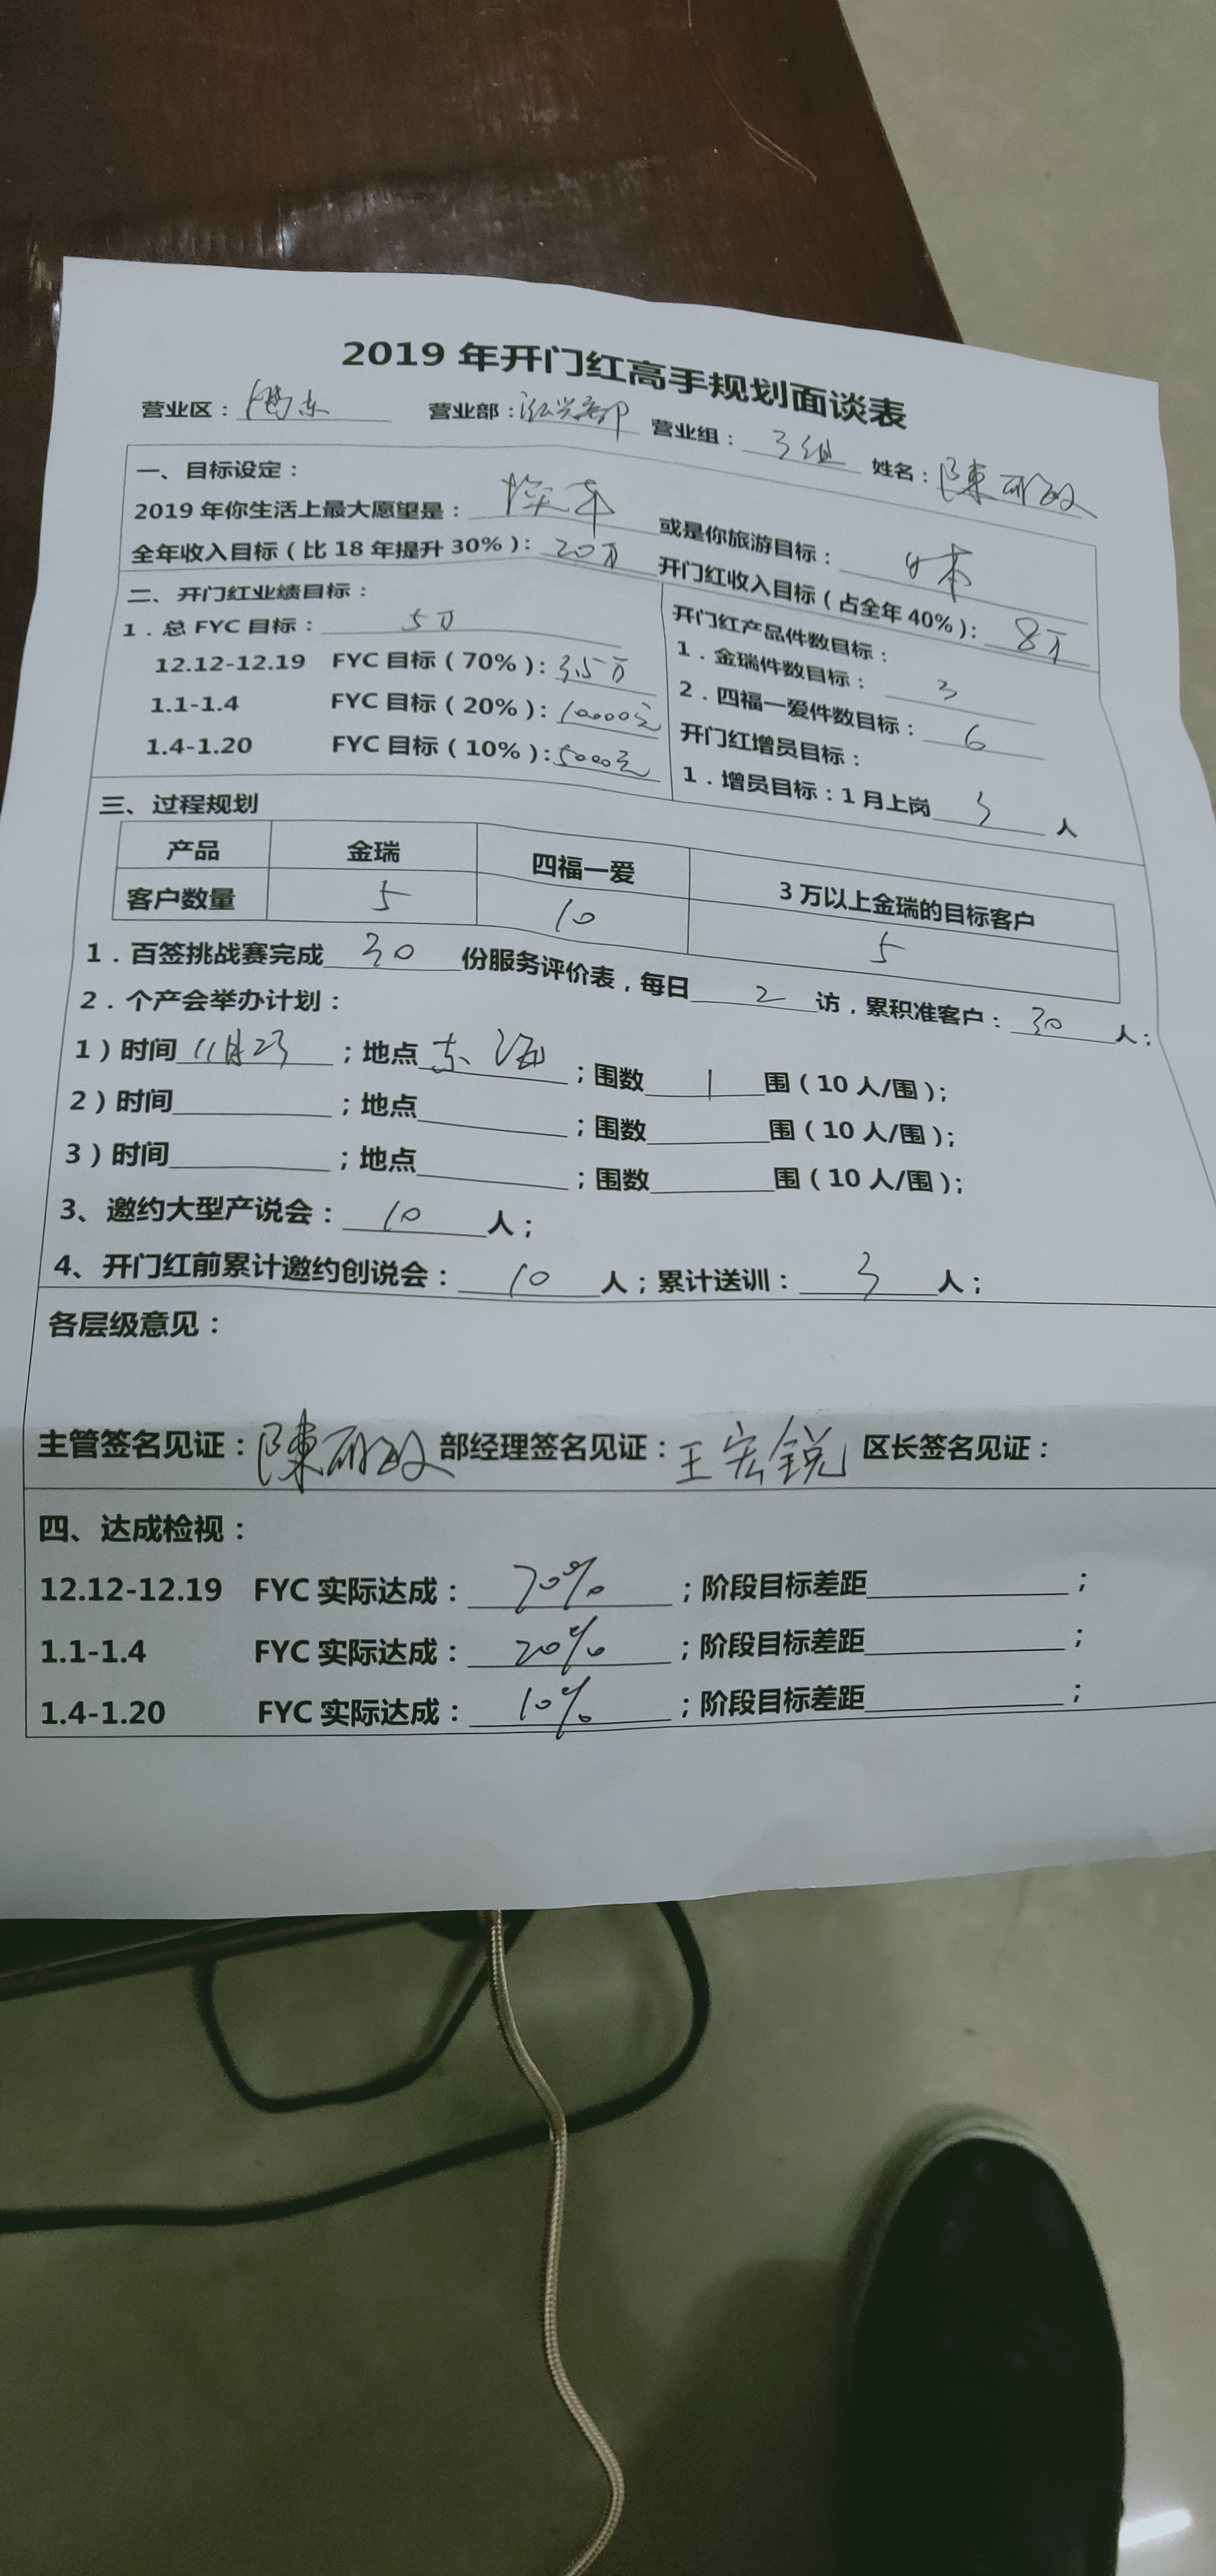 2019 年开门红高手规划面谈表
营业区： 营业部： 营业组：3组 姓名：陳丽敏
一、目标设定：
2019 年你生活上最大愿望是： 或是你旅游目标：日本
全年收入目标（比 18 年提升 30%）：20万 开门红收入目标（占全年 40%）：8万
二、开门红业绩目标：
1．总 FYC 目标：5万
12.12-12.19 FYC 目标（70%）：3.5万
1.1-1.4 FYC 目标（20%）：10000元
1.4-1.20 FYC 目标（10%）：5000元
开门红产品件数目标：
1．金瑞件数目标：3
2．四福一爱件数目标：6
开门红增员目标：
1．增员目标：1 月上岗 3 人
三、过程规划
产品 金瑞 四福一爱 3 万以上金瑞的目标客户
客户数量 5 10 5
1．百签挑战赛完成 30 份服务评价表，每日 2 访，累积准客户：30 人；
2．个产会举办计划：
1）时间 11月23 ；地点 东海 ；围数 1 围（10 人/围）；
2）时间 ；地点 ；围数 围（10 人/围）；
3）时间 ；地点 ；围数 围（10 人/围）；
3、邀约大型产说会：10 人；
4、开门红前累计邀约创说会：10 人；累计送训：3 人；
各层级意见：
主管签名见证：陳丽敏 部经理签名见证：王宏锐 区长签名见证：
四、达成检视：
12.12-12.19 FYC 实际达成：70% ；阶段目标差距 ；
1.1-1.4 FYC 实际达成：20% ；阶段目标差距 ；
1.4-1.20 FYC 实际达成：10% ；阶段目标差距 ；